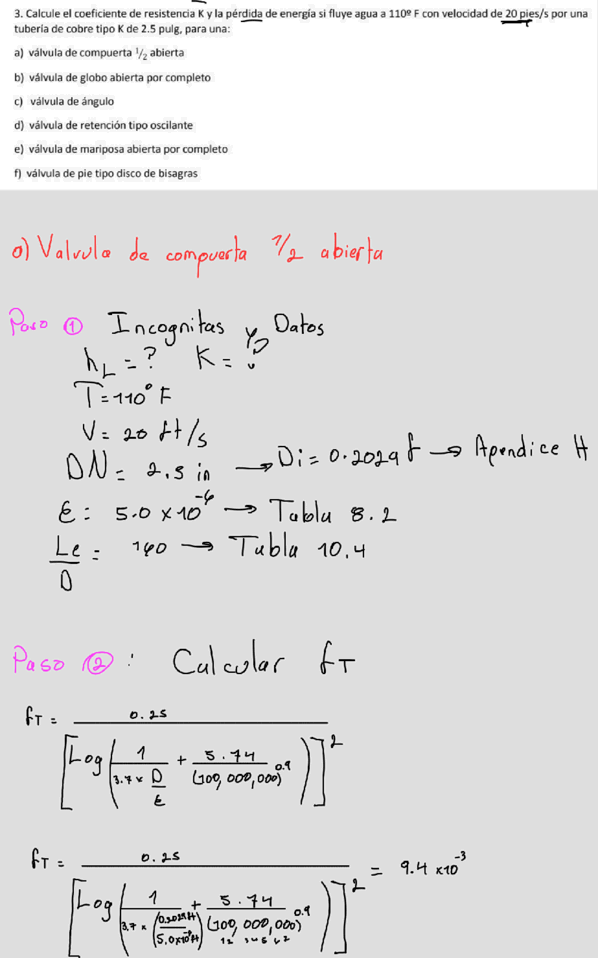 3. Calcule el coeficiente de resistencia K y la pérdida de energía si fluye agua a 110º F con velocidad de 20 pies/s por una
tubería de cobre tipo K de 2.5 pulg, para una:
a) válvula de compuerta ½ abierta
b) válvula de globo abierta por completo
c) válvula de ángulo
d) válvula de retención tipo oscilante
e) válvula de mariposa abierta por completo
f) válvula de pie tipo disco de bisagras
a) Valvula de compuerta 1/2 abierta
Paso ① Incognitas y Datos
hL = ? K = ?
T = 110° F
V = 20 ft/s
DN = 2.5 in → Di = 0.2029 f → Apendice H
ε: 5.0 x 10^-6 → Tabla 8.2
Le/D = 160 → Tabla 10.4
Paso ② : Calcular fT
fT = 0.25 / [Log(1/(3.7 x D/ε) + 5.74/(100,000,000)^0.9)]^2
fT = 0.25 / [Log(1/(3.7 x (0.2029ft/5.0x10^-6ft)) + 5.74/(100,000,000)^0.9)]^2 = 9.4 x10^-3